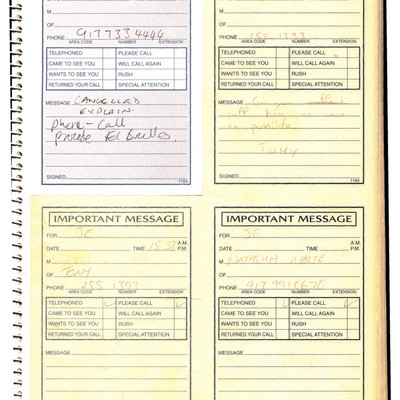 M
OF
PHONE 917 733 4444
AREA CODE NUMBER EXTENSION
TELEPHONED PLEASE CALL
CAME TO SEE YOU WILL CALL AGAIN
WANTS TO SEE YOU RUSH
RETURNED YOUR CALL SPECIAL ATTENTION
MESSAGE CANCELLED
EXPLAIN
phone - call
SIGNED
1184
M
OF
PHONE 255 1393
AREA CODE NUMBER EXTENSION
TELEPHONED PLEASE CALL
CAME TO SEE YOU WILL CALL AGAIN
WANTS TO SEE YOU RUSH
RETURNED YOUR CALL SPECIAL ATTENTION
MESSAGE
call him as soon
as possible
TONY
SIGNED
1184
IMPORTANT MESSAGE
FOR JE
DATE TIME 15:58 A.M. P.M.
M
OF TONY
PHONE 255 1393
AREA CODE NUMBER EXTENSION
TELEPHONED ✓ PLEASE CALL ✓
CAME TO SEE YOU WILL CALL AGAIN
WANTS TO SEE YOU RUSH
RETURNED YOUR CALL SPECIAL ATTENTION
MESSAGE
IMPORTANT MESSAGE
FOR JE
DATE TIME A.M. P.M.
M NATASHA
OF
PHONE 917
AREA CODE NUMBER EXTENSION
TELEPHONED ✓ PLEASE CALL ✓
CAME TO SEE YOU WILL CALL AGAIN
WANTS TO SEE YOU RUSH
RETURNED YOUR CALL SPECIAL ATTENTION
MESSAGE